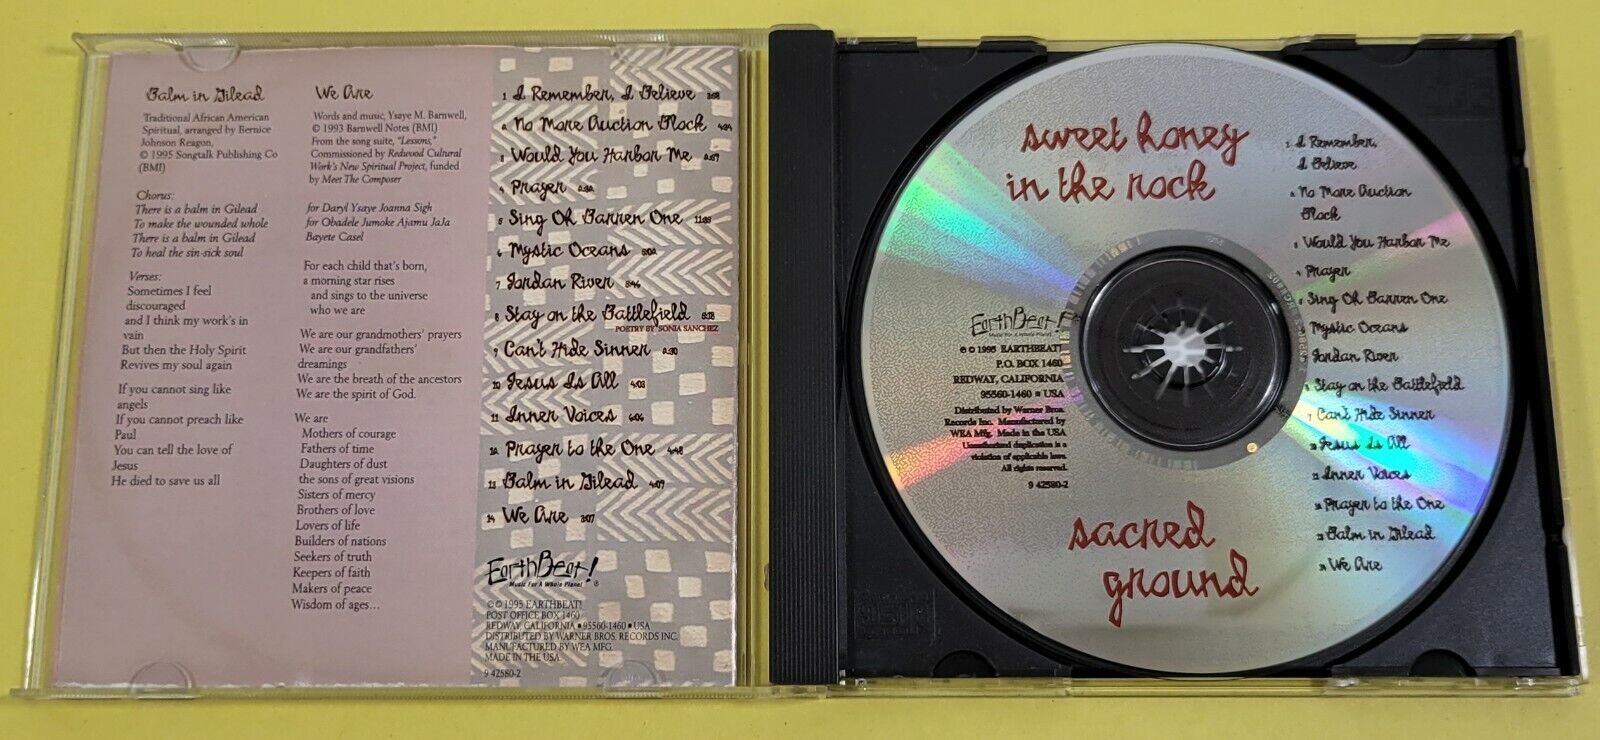 Balm in Gilead
Traditional African American
Spiritual, arranged by Bernice
Johnson Reagon,
© 1995 Songtalk Publishing Co
(BMI)
Chorus:
There is a balm in Gilead
To make the wounded whole
There is a balm in Gilead
To heal the sin-sick soul
Verses:
Sometimes I feel
discouraged
and I think my work's in
vain
But then the Holy Spirit
Revives my soul again
If you cannot sing like
angels
If you cannot preach like
Paul
You can tell the love of
Jesus
He died to save us all
We Are
Words and music, Ysaye M. Barnwell,
© 1993 Barnwell Notes (BMI)
From the song suite, "Lessons,"
Commissioned by Redwood Cultural
Work's New Spiritual Project, funded
by Meet The Composer
for Daryl Ysaye Joanna Sigh
for Obadele Jumoke Ajamu JaJa
Bayete Casel
For each child that's born,
a morning star rises
and sings to the universe
who we are
We are our grandmothers' prayers
We are our grandfathers'
dreamings
We are the breath of the ancestors
We are the spirit of God.
We are
Mothers of courage
Fathers of time
Daughters of dust
the sons of great visions
Sisters of mercy
Brothers of love
Lovers of life
Builders of nations
Seekers of truth
Keepers of faith
Makers of peace
Wisdom of ages...
1 I Remember, I Believe
2 No More Auction Block 4:24
3 Would You Harbor Me
4 Prayer
5 Sing Oh Barren One
6 Mystic Oceans
7 Jordan River
8 Stay on the Battlefield
POETRY BY SONIA SANCHEZ
9 Can't Hide Sinner
10 Jesus Is All 4:03
11 Inner Voices
12 Prayer to the One 4:48
13 Balm in Gilead 4:09
14 We Are
EarthBeat!
Music For A Whole Planet ®
℗ © 1995 EARTHBEAT!
POST OFFICE BOX 1460
REDWAY, CALIFORNIA ■ 95560-1460 ■ USA
DISTRIBUTED BY WARNER BROS. RECORDS INC.
MANUFACTURED BY WEA MFG.
MADE IN THE USA.
9 42580-2
sweet honey
in the rock
EarthBeat!
Music For A Whole Planet
℗ © 1995 EARTHBEAT!
P.O. BOX 1460
REDWAY, CALIFORNIA
95560-1460 ■ USA
Distributed by Warner Bros.
Records Inc. Manufactured by
WEA Mfg. Made in the USA
Unauthorized duplication is a
violation of applicable laws.
All rights reserved.
9 42580-2
sacred
ground
1 I Remember,
I Believe
2 No More Auction
Block
3 Would You Harbor Me
4 Prayer
5 Sing Oh Barren One
6 Mystic Oceans
7 Jordan River
8 Stay on the Battlefield
9 Can't Hide Sinner
10 Jesus Is All
11 Inner Voices
12 Prayer to the One
13 Balm in Gilead
14 We Are